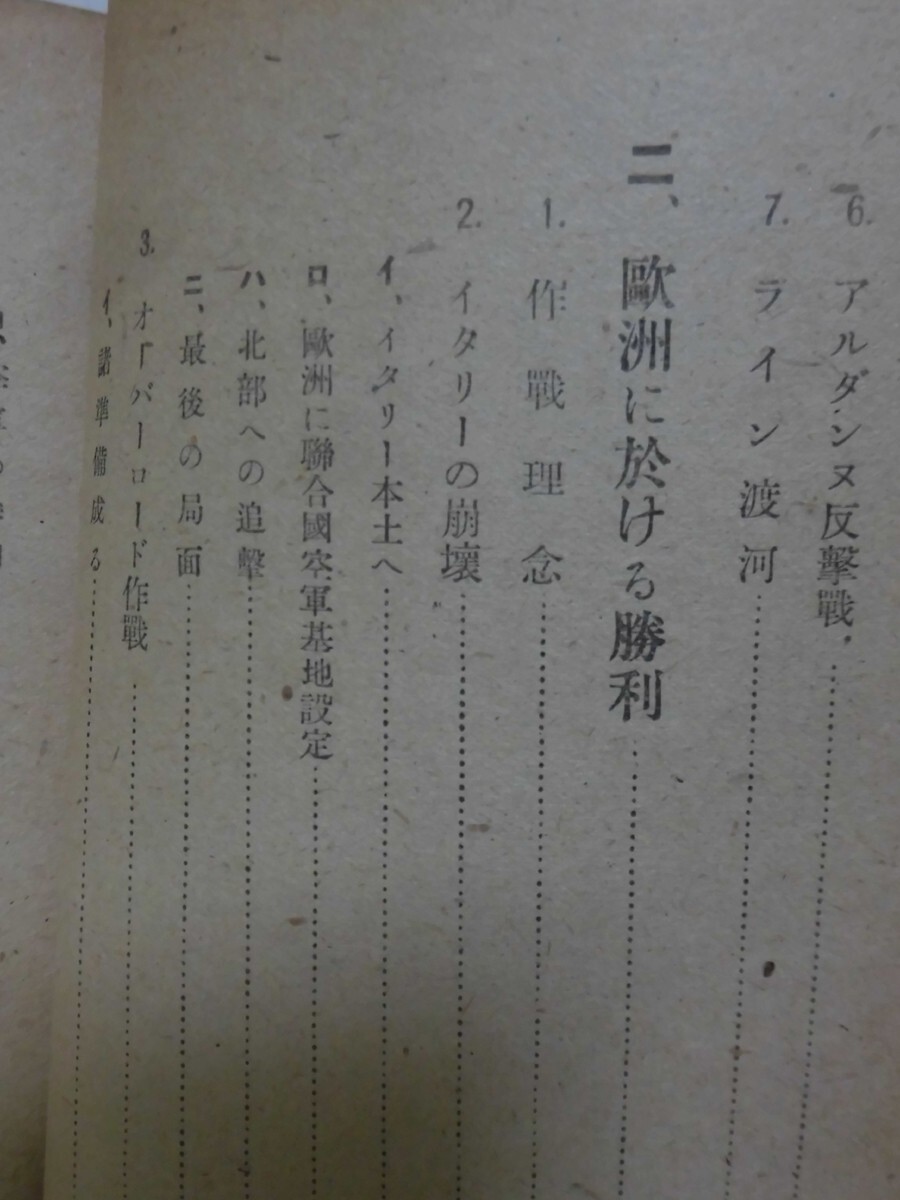 6. アルダンヌ反擊戰
7. ライン渡河
二、歐洲に於ける勝利
1. 作戰理念
2. イタリーの崩壞
イ、イタリー本土へ
ロ、歐洲に聯合國空軍基地設定
ハ、北部への追擊
ニ、最後の局面
3. オーバーロード作戰
イ、諸準備成る